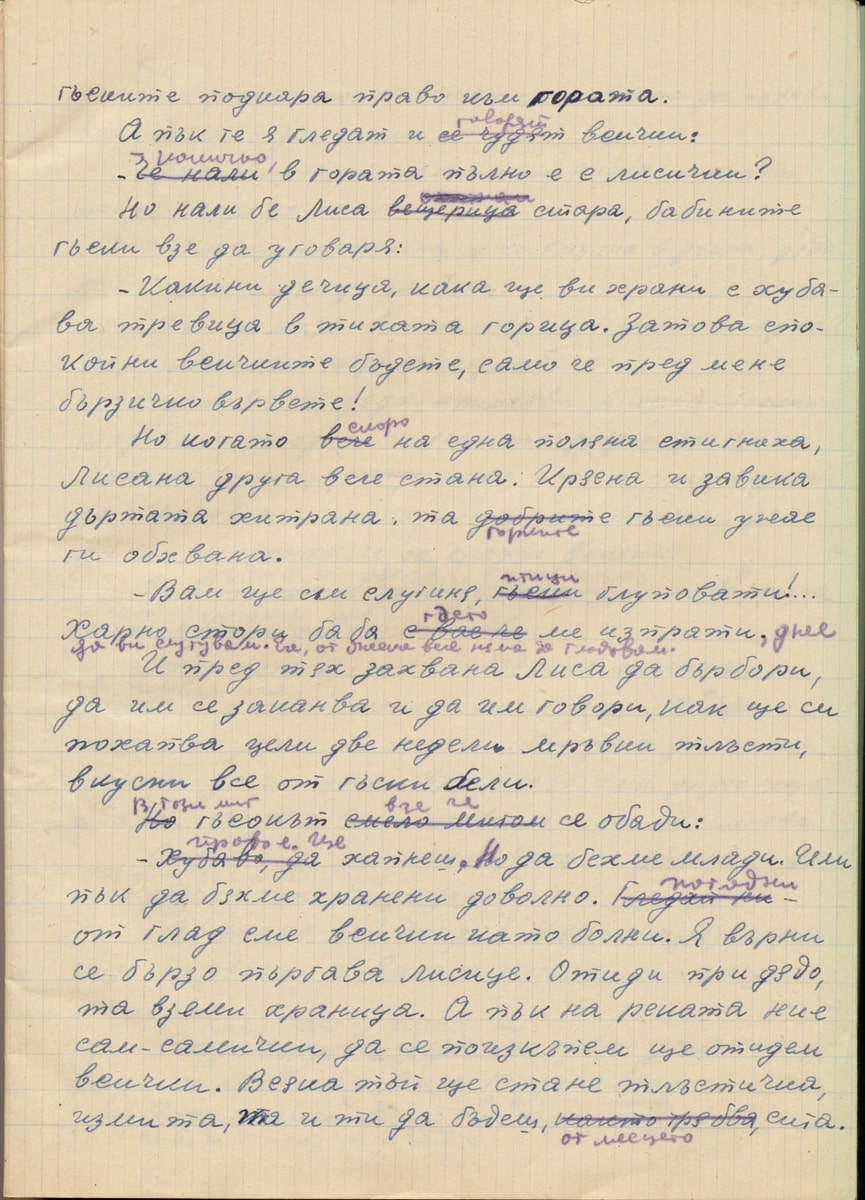 гъските подкара право към гората.
говорят
А пък те я гледат и се чудят всички:
конично,
- Че нали в гората пълно е с лисички?
Но нали бе Лиса вещерица стара, бабините
гъски взе да уговаря:
- Какини дечица, кака ще ви храни с хуба-
ва тревица в тихата горица. Затова спо-
койни всичките бъдете, само че пред мене
бързичко вървете!
скоро
Но когато вече на една поляна стигнаха,
Лисана друга вече стана. Кресна и завика
дъртата хитрана, та добрите гъски ужас
горките
ги обхвана.
птици
- Вам ще съм слугиня, гъски глуповати!...
гдето
Харно стори баба с вас че ме изпрати, днес
да ви слугувам. Че, от днеска вече няма да гладувам.
И пред тях захвана Лиса да бърбори,
да им се заканва и да им говори, как ще си
похапва цели две недели мръвки тлъсти,
вкусни все от гъски бели.
В този миг взе че
Но гъсокът смело митом се обади:
право е. Ще
- Хубаво, да хапнеш. Но да бехме млади. Или
погледни
пък да бяхме хранени доволно. Гледай ни -
от глад сме всички като болни. Я върни
се бързо пъргава лисице. Отиди при дядо,
та вземи храница. А пък на реката ние
сам-самички, да се поизкъпем ще отидем
всички. Всяка тъй ще стане тлъстичка,
измита, та и ти да бъдеш, както трябва, сита.
от месцето